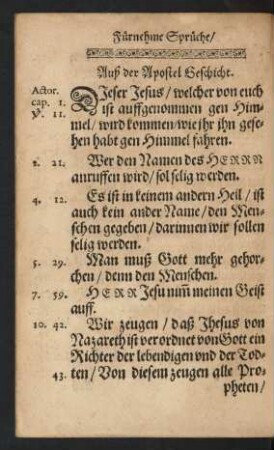 Fürnehme Sprüche/
Auß der Apostel Geschicht.
Actor. DJeser Jesus/ welcher von euch
cap. 1. ist auffgenommen gen Him-
V. 11. mel/ wird kommen/ wie jhr jhn gese-
hen habt gen Himmel fahren.
2. 21. Wer den Namen des HERRN
anruffen wird/ sol selig werden.
4. 12. Es ist in keinem andern Heil/ ist
auch kein ander Name/ den Men-
schen gegeben/ darinnen wir sollen
selig werden.
5. 29. Man muß Gott mehr gehor-
chen/ denn den Menschen.
7. 59. HERR Jesu nim̃ meinen Geist
auff.
10. 42. Wir zeugen/ daß Jhesus von
Nazareth ist verordnet von Gott ein
Richter der lebendigen vnd der Tod-
43. ten/ Von diesem zeugen alle Pro-
pheten/